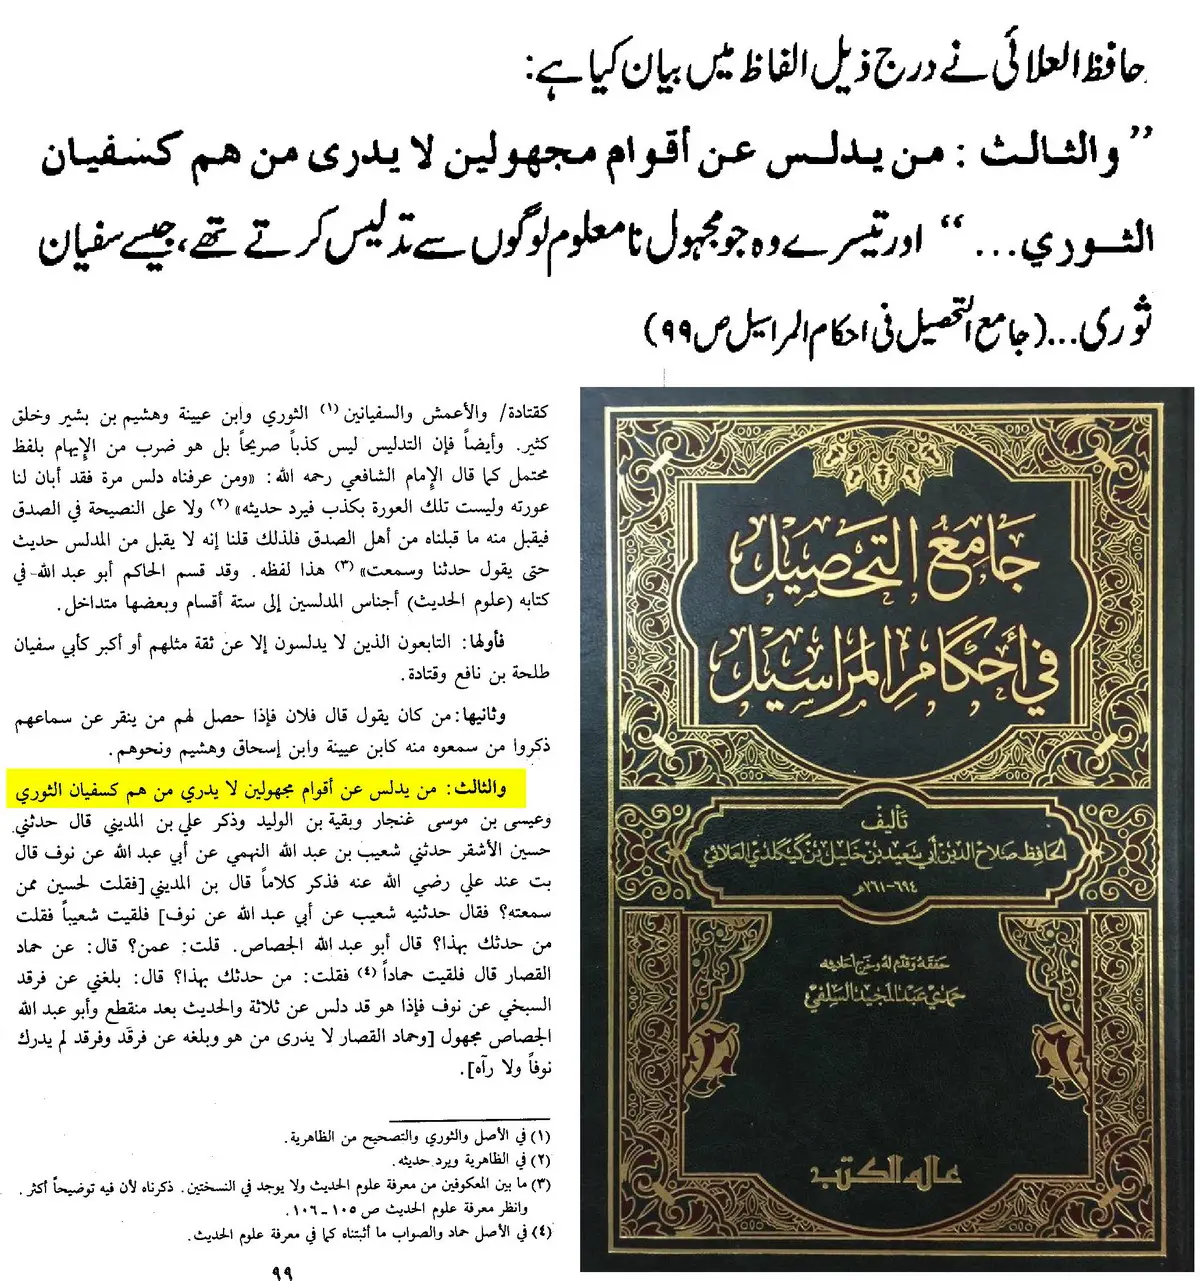 حافظ العلائی نے درج ذیل الفاظ میں بیان کیا ہے:
”والثالث : من يدلس عن أقوام مجهولين لا يدرى من هم كسفيان
الثوري...“ اور تیسرے وہ جو مجہول نامعلوم لوگوں سے تدلیس کرتے تھے، جیسے سفیان
ثوری...(جامع التحصیل فی احکام المراسیل ص۹۹)
كقتادة/ والأعمش والسفيانين (١) الثوري وابن عيينة وهشيم بن بشير وخلق
كثير. وأيضاً فإن التدليس ليس كذباً صريحاً بل هو ضرب من الإيهام بلفظ
محتمل كما قال الإمام الشافعي رحمه الله: «ومن عرفناه دلس مرة فقد أبان لنا
عورته وليست تلك العورة بكذب فيرد حديثه» (٢) ولا على النصيحة في الصدق
فيقبل منه ما قبلناه من أهل الصدق فلذلك قلنا إنه لا يقبل من المدلس حديث
حتى يقول حدثنا وسمعت» (٣) هذا لفظه. وقد قسم الحاكم أبو عبد الله- في
كتابه (علوم الحديث) أجناس المدلسين إلى ستة أقسام وبعضها متداخل.
فأولها: التابعون الذين لا يدلسون إلا عن ثقة مثلهم أو أكبر كأبي سفيان
طلحة بن نافع وقتادة.
وثانيها: من كان يقول قال فلان فإذا حصل لهم من ينقر عن سماعهم
ذكروا من سمعوه منه كابن عيينة وابن إسحاق وهشيم ونحوهم.
والثالث: من يدلس عن أقوام مجهولين لا يدري من هم كسفيان الثوري
وعيسى بن موسى غنجار وبقية بن الوليد وذكر علي بن المديني قال حدثني
حسين الأشقر حدثني شعيب بن عبد الله النهمي عن أبي عبد الله عن نوف قال
بت عند علي رضي الله عنه فذكر كلاماً قال بن المديني [فقلت لحسين ممن
سمعته؟ فقال حدثنيه شعيب عن أبي عبد الله عن نوف] فلقيت شعيباً فقلت
من حدثك بهذا؟ قال أبو عبد الله الجصاص. قلت: عمن؟ قال: عن حماد
القصار قال فلقيت حماداً (٤) فقلت: من حدثك بهذا؟ قال: بلغني عن فرقد
السبخي عن نوف فإذا هو قد دلس عن ثلاثة والحديث بعد منقطع وأبو عبد الله
الجصاص مجهول [وحماد القصار لا يدرى من هو وبلغه عن فرقد وفرقد لم يدرك
نوفاً ولا رآه].
(١) في الأصل والثوري والتصحيح من الظاهرية.
(٢) في الظاهرية ويرد حديثه.
(٣) ما بين المعكوفين من معرفة علوم الحديث ولا يوجد في النسختين. ذكرناه لأن فيه توضيحاً أكثر.
وانظر معرفة علوم الحديث ص ١٠٥ - ١٠٦.
(٤) في الأصل حماد والصواب ما أثبتناه كما في معرفة علوم الحديث.
٩٩
جَامِعُ التَّحْصِيل
فِي أَحْكَامِ المَرَاسِيل
تأليف
الحافظ صلاح الدين أبي سعيد بن خليل بن كيكلدي العلائي
٦٩٤-٧٦١هـ
حققه وقدم له وخرج أحاديثه
حمدي عبد المجيد السلفي
عالم الكتب